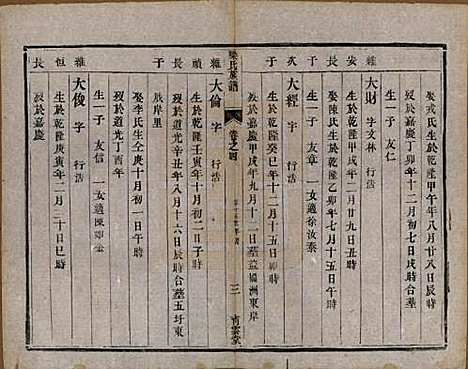 娶戎氏生於乾隆甲午年八月廿八日辰時
歿於嘉慶丁卯年十二月初七日戌時
生一子 友仁
雜 大財 字文林 行活
安 生於乾隆甲戌年十二月廿九日丑時
長 娶陳氏生於乾隆乙卯年七月十五日午時
子 生一子 友章 一女適徐汝泰
次 大經 字 行活
于 生於乾隆癸巳年十二月十五日卯時
歿於嘉慶甲戌年九月十二日墓 洲東岸
梁氏族譜 卷之四 三
雜 大倫 字 行活
頑 生於乾隆壬寅年十月初二日子時
長 歿於道光辛丑年八月十六日辰時合墓五圩東
子 岸里
娶李氏生年庚十月初一日午時
歿於道光丁酉年
生一子 友信 一女適陳
雜 大俊 字 行活
但 生於乾隆庚寅年二月二十日巳時
長 歿於嘉慶